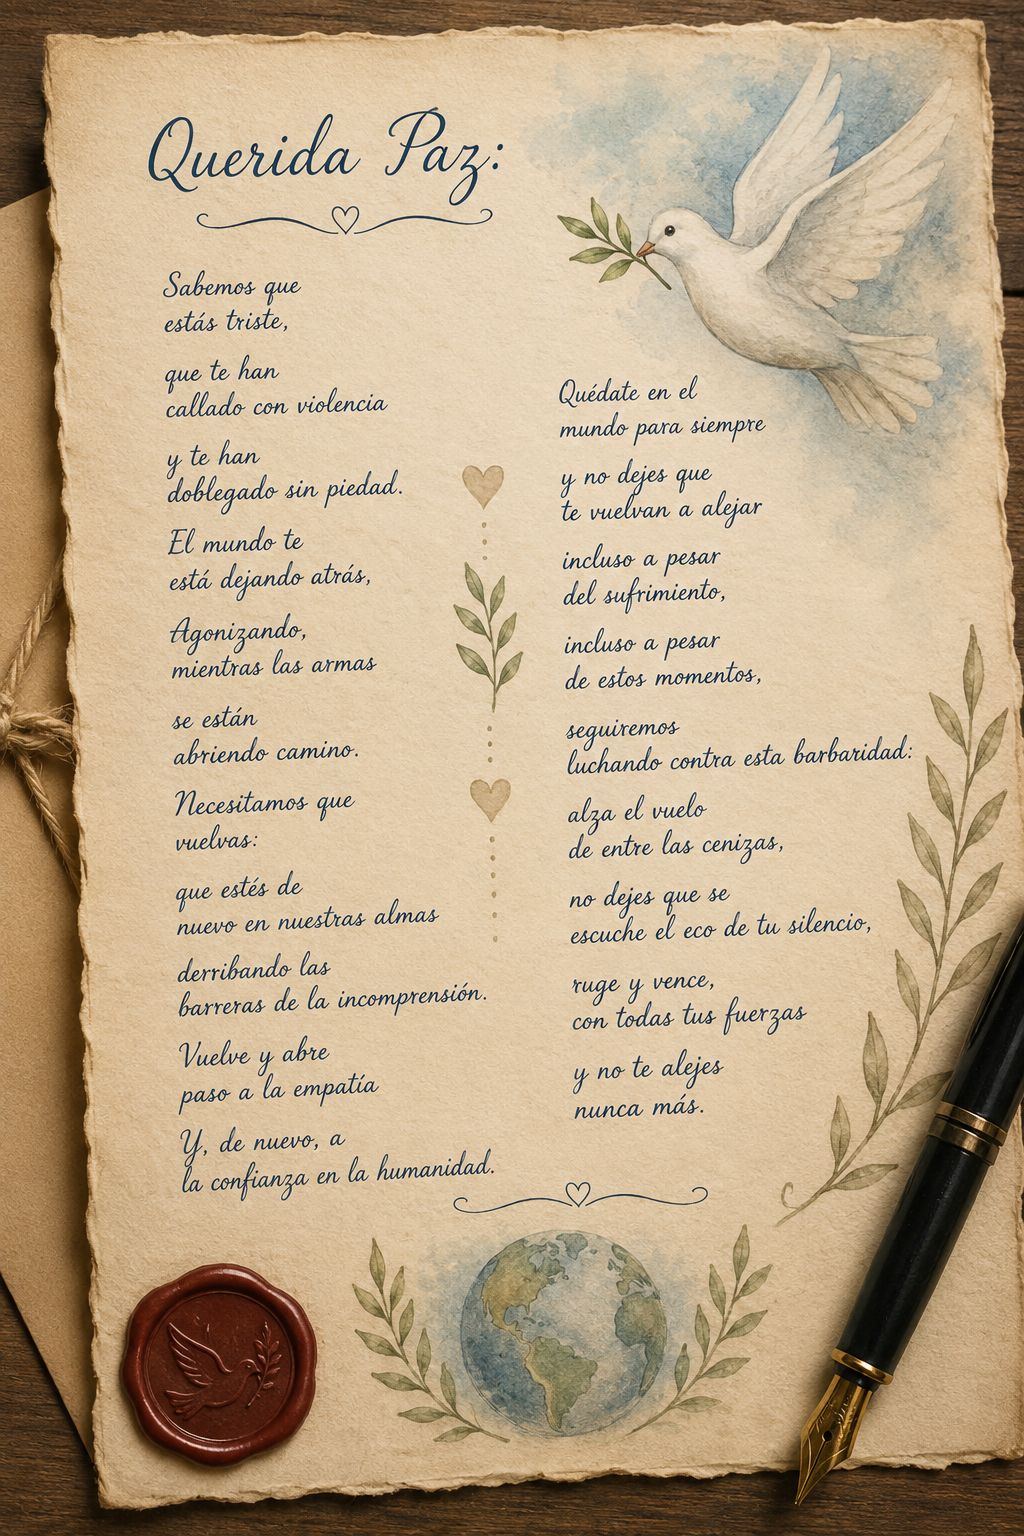 Querida Paz:
Sabemos que
estás triste,
que te han
callado con violencia
y te han
doblegado sin piedad.
El mundo te
está dejando atrás,
Agonizando,
mientras las armas
se están
abriendo camino.
Necesitamos que
vuelvas:
que estés de
nuevo en nuestras almas
derribando las
barreras de la incomprensión.
Vuelve y abre
paso a la empatía
Y, de nuevo, a
la confianza en la humanidad.
Quédate en el
mundo para siempre
y no dejes que
te vuelvan a alejar
incluso a pesar
del sufrimiento,
incluso a pesar
de estos momentos,
seguiremos
luchando contra esta barbaridad:
alza el vuelo
de entre las cenizas,
no dejes que se
escuche el eco de tu silencio,
ruge y vence,
con todas tus fuerzas
y no te alejes
nunca más.